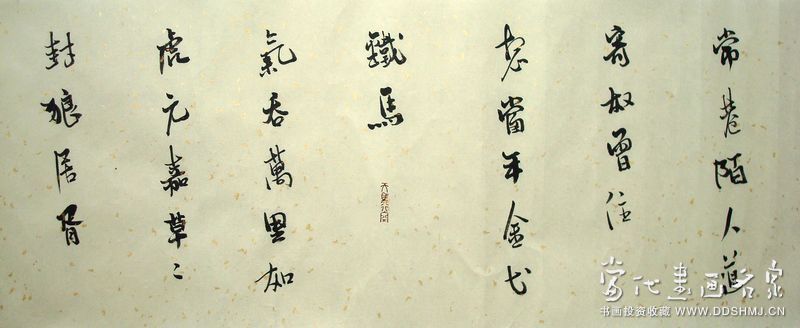 常巷陌人道
寄奴曾住
想當年金戈
鐵馬
氣吞萬里如
虎元嘉草〻
封狼居胥
當代書画名家
书画投资收藏 WWW.DDSHMJ.CN